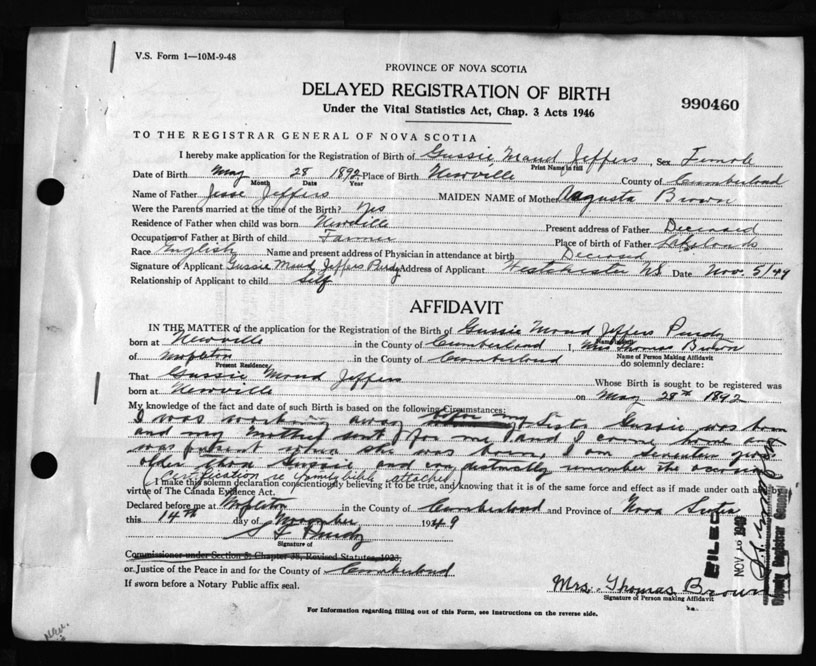 V.S. Form 1—10M-9-48
PROVINCE OF NOVA SCOTIA
DELAYED REGISTRATION OF BIRTH
990460
Under the Vital Statistics Act, Chap. 3 Acts 1946
TO THE REGISTRAR GENERAL OF NOVA SCOTIA
I hereby make application for the Registration of Birth of Gussie Maud Jeffers, Sex Female
Print Name in full
Date of Birth May 28 1892 Place of Birth Newville County of Cumberland
Month Date Year
Name of Father Jesse Jeffers MAIDEN NAME of Mother Augusta Brown
Were the Parents married at the time of the Birth? Yes
Residence of Father when child was born Newville Present address of Father Deceased
Occupation of Father at Birth of child Farmer Place of birth of Father
Race English Name and present address of Physician in attendance at birth Deceased
Signature of Applicant Gussie Maud Jeffers Purdy Address of Applicant Westchester NS Date Nov. 5/49
Relationship of Applicant to child Self
AFFIDAVIT
IN THE MATTER of the application for the Registration of the Birth of Gussie Maud Jeffers Purdy
born at Newville in the County of Cumberland I, Mrs Thomas Brown
of Mapleton in the County of Cumberland do solemnly declare:
Present Residence Name of Person Making Affidavit
That Gussie Maud Jeffers Whose Birth is sought to be registered was
born at Newville on May 28th 1892
My knowledge of the fact and date of such Birth is based on the following Circumstances:
I was working away when my Sister Gussie was born
and my Mother sent for me and I come home and
was present when she was born, I am Seventeen years
older than Gussie and can distinctly remember the occasion
(Certification re family bible attached)
I make this solemn declaration conscientiously believing it to be true, and knowing that it is of the same force and effect as if made under oath and by
virtue of The Canada Evidence Act.
Declared before me at Mapleton in the County of Cumberland and Province of Nova Scotia
this 14th day of November 1949
Purdy
Signature of
Commissioner under Section 8: Chapter 38, Revised Statutes, 1923
or Justice of the Peace in and for the County of Cumberland
If sworn before a Notary Public affix seal.
Mrs. Thomas Brown
Signature of Person making Affidavit
FILED
NOV 1949
Deputy Registrar General
For Information regarding filling out of this Form, see Instructions on the reverse side.